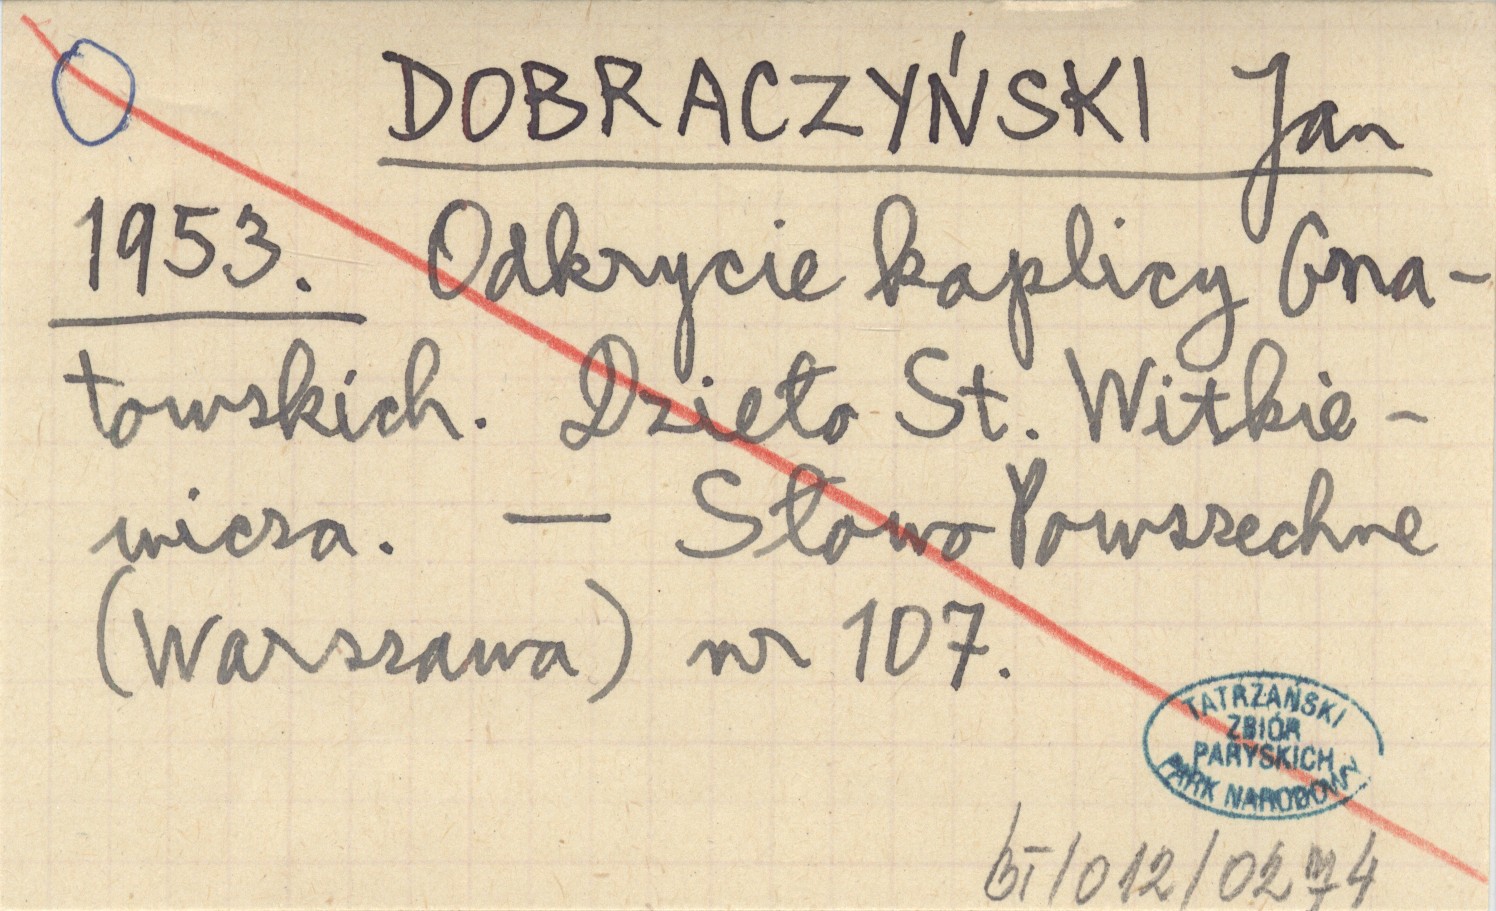 DOBRACZYŃSKI Jan
1953. Odkrycie kaplicy Gna-
towskich. Dzieło St. Witkie-
wicza. — Słowo Powszechne
(Warszawa) nr 107.
TATRZAŃSKI
ZBIÓR
PARYSKICH
PARK NARODOWY
/012/0274